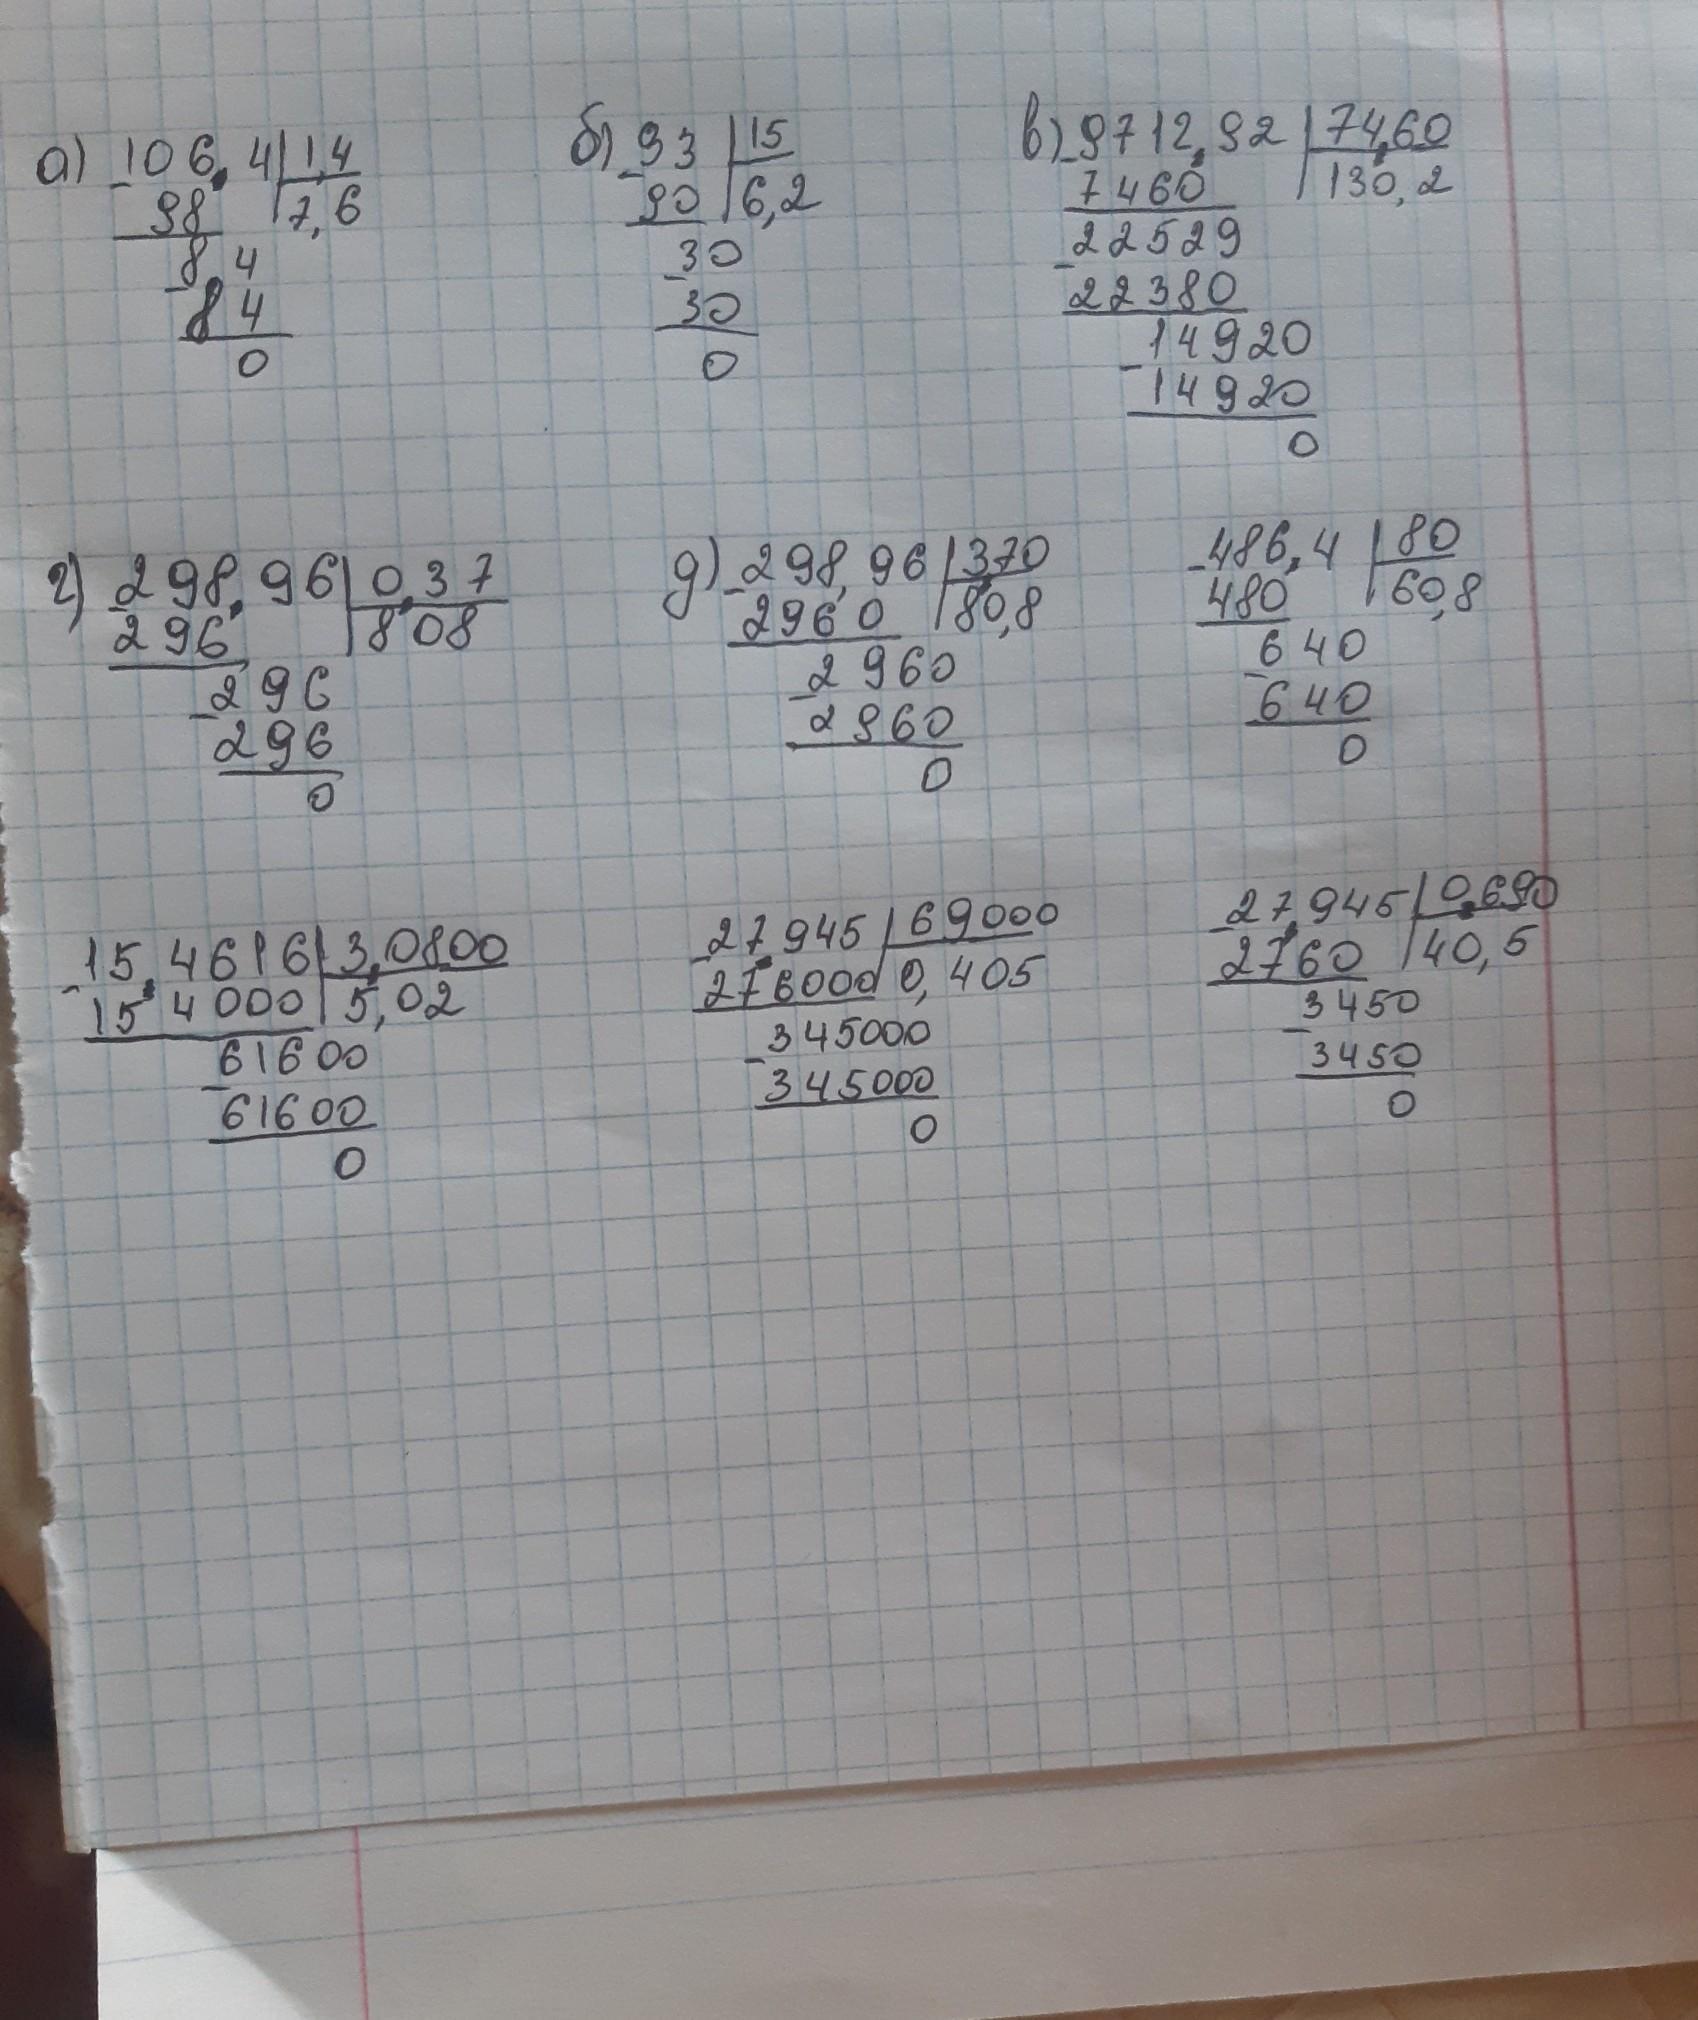 а) 106,4 | 1,4
98 | 7,6
8,4
84
0
б) 93 | 15
90 | 6,2
30
30
0
в) 9712,92 | 74,60
7460 | 130,2
22529
22380
14920
14920
0
г) 298,96 | 0,37
296 | 808
296
296
0
д) 298,96 | 3,70
2960 | 80,8
2960
2960
0
486,4 | 80
480 | 60,8
640
640
0
15,4616 | 3,0800
15 4000 | 5,02
61600
61600
0
27,945 | 69000
276000 0,405
345000
345000
0
27,945 | 0,690
2760 | 40,5
3450
3450
0